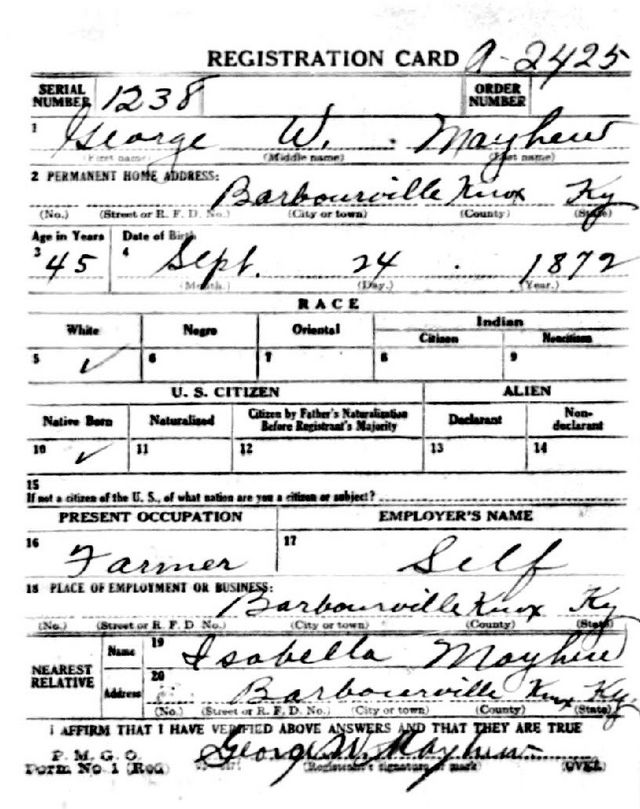 REGISTRATION CARD A-2425
SERIAL NUMBER 1238 ORDER NUMBER
1 George W. Mayhew
(First name) (Middle name) (Last name)
2 PERMANENT HOME ADDRESS:
Barbourville Knox Ky
(No.) (Street or R. F. D. No.) (City or town) (County) (State)
Age in Years Date of Birth
3 45 4 Sept. 24 . 1872
(Month.) (Day.) (Year.)
RACE
White Negro Oriental Indian
Citizen Noncitizen
5 ✓ 6 7 8 9
U. S. CITIZEN ALIEN
Native Born Naturalized Citizen by Father's Naturalization Before Registrant's Majority Declarant Non-declarant
10 ✓ 11 12 13 14
15
If not a citizen of the U. S., of what nation are you a citizen or subject?
PRESENT OCCUPATION EMPLOYER'S NAME
16 Farmer 17 Self
18 PLACE OF EMPLOYMENT OR BUSINESS:
Barbourville Knox Ky
(No.) (Street or R. F. D. No.) (City or town) (County) (State)
NEAREST RELATIVE Name 19 Isabella Mayhew
Address 20 Barbourville Knox Ky
(No.) (Street or R. F. D. No.) (City or town) (County) (State)
I AFFIRM THAT I HAVE VERIFIED ABOVE ANSWERS AND THAT THEY ARE TRUE
P. M. G. O.
Form No. 1 (Red) George W. Mayhew
(Registrant's signature or mark) (OVER)